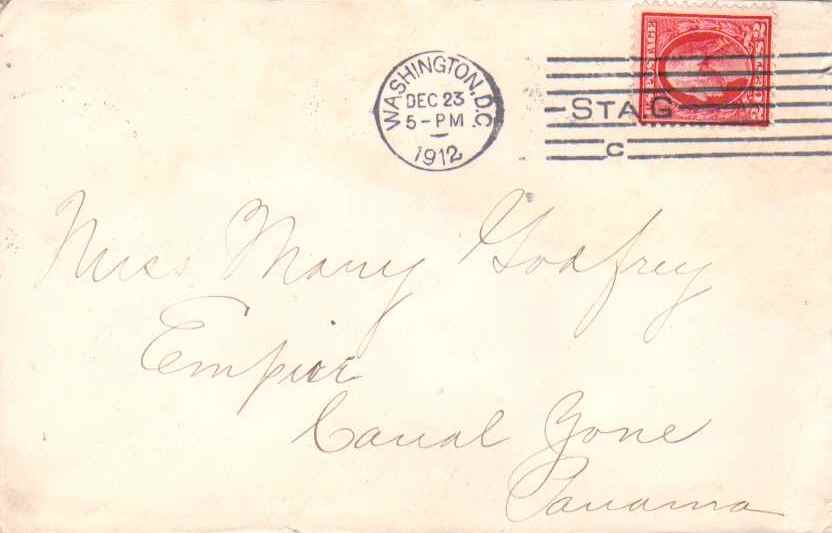 WASHINGTON, D.C.
DEC 23
5-PM
1912
STA. G
C
POSTAGE
Miss Mary Godfrey
Empier
Canal Zone
Panama